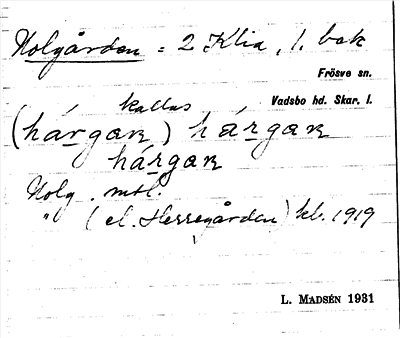 Holgården = 2 Klia, 1. bak
Frösve sn.
kallas
Vadsbo hd. Skar. l.
(hárgaʀ) hárgaʀ
hárgaʀ
Holg. mtl.
" (el. Herregården) kb. 1919
L. MADSÉN 1931